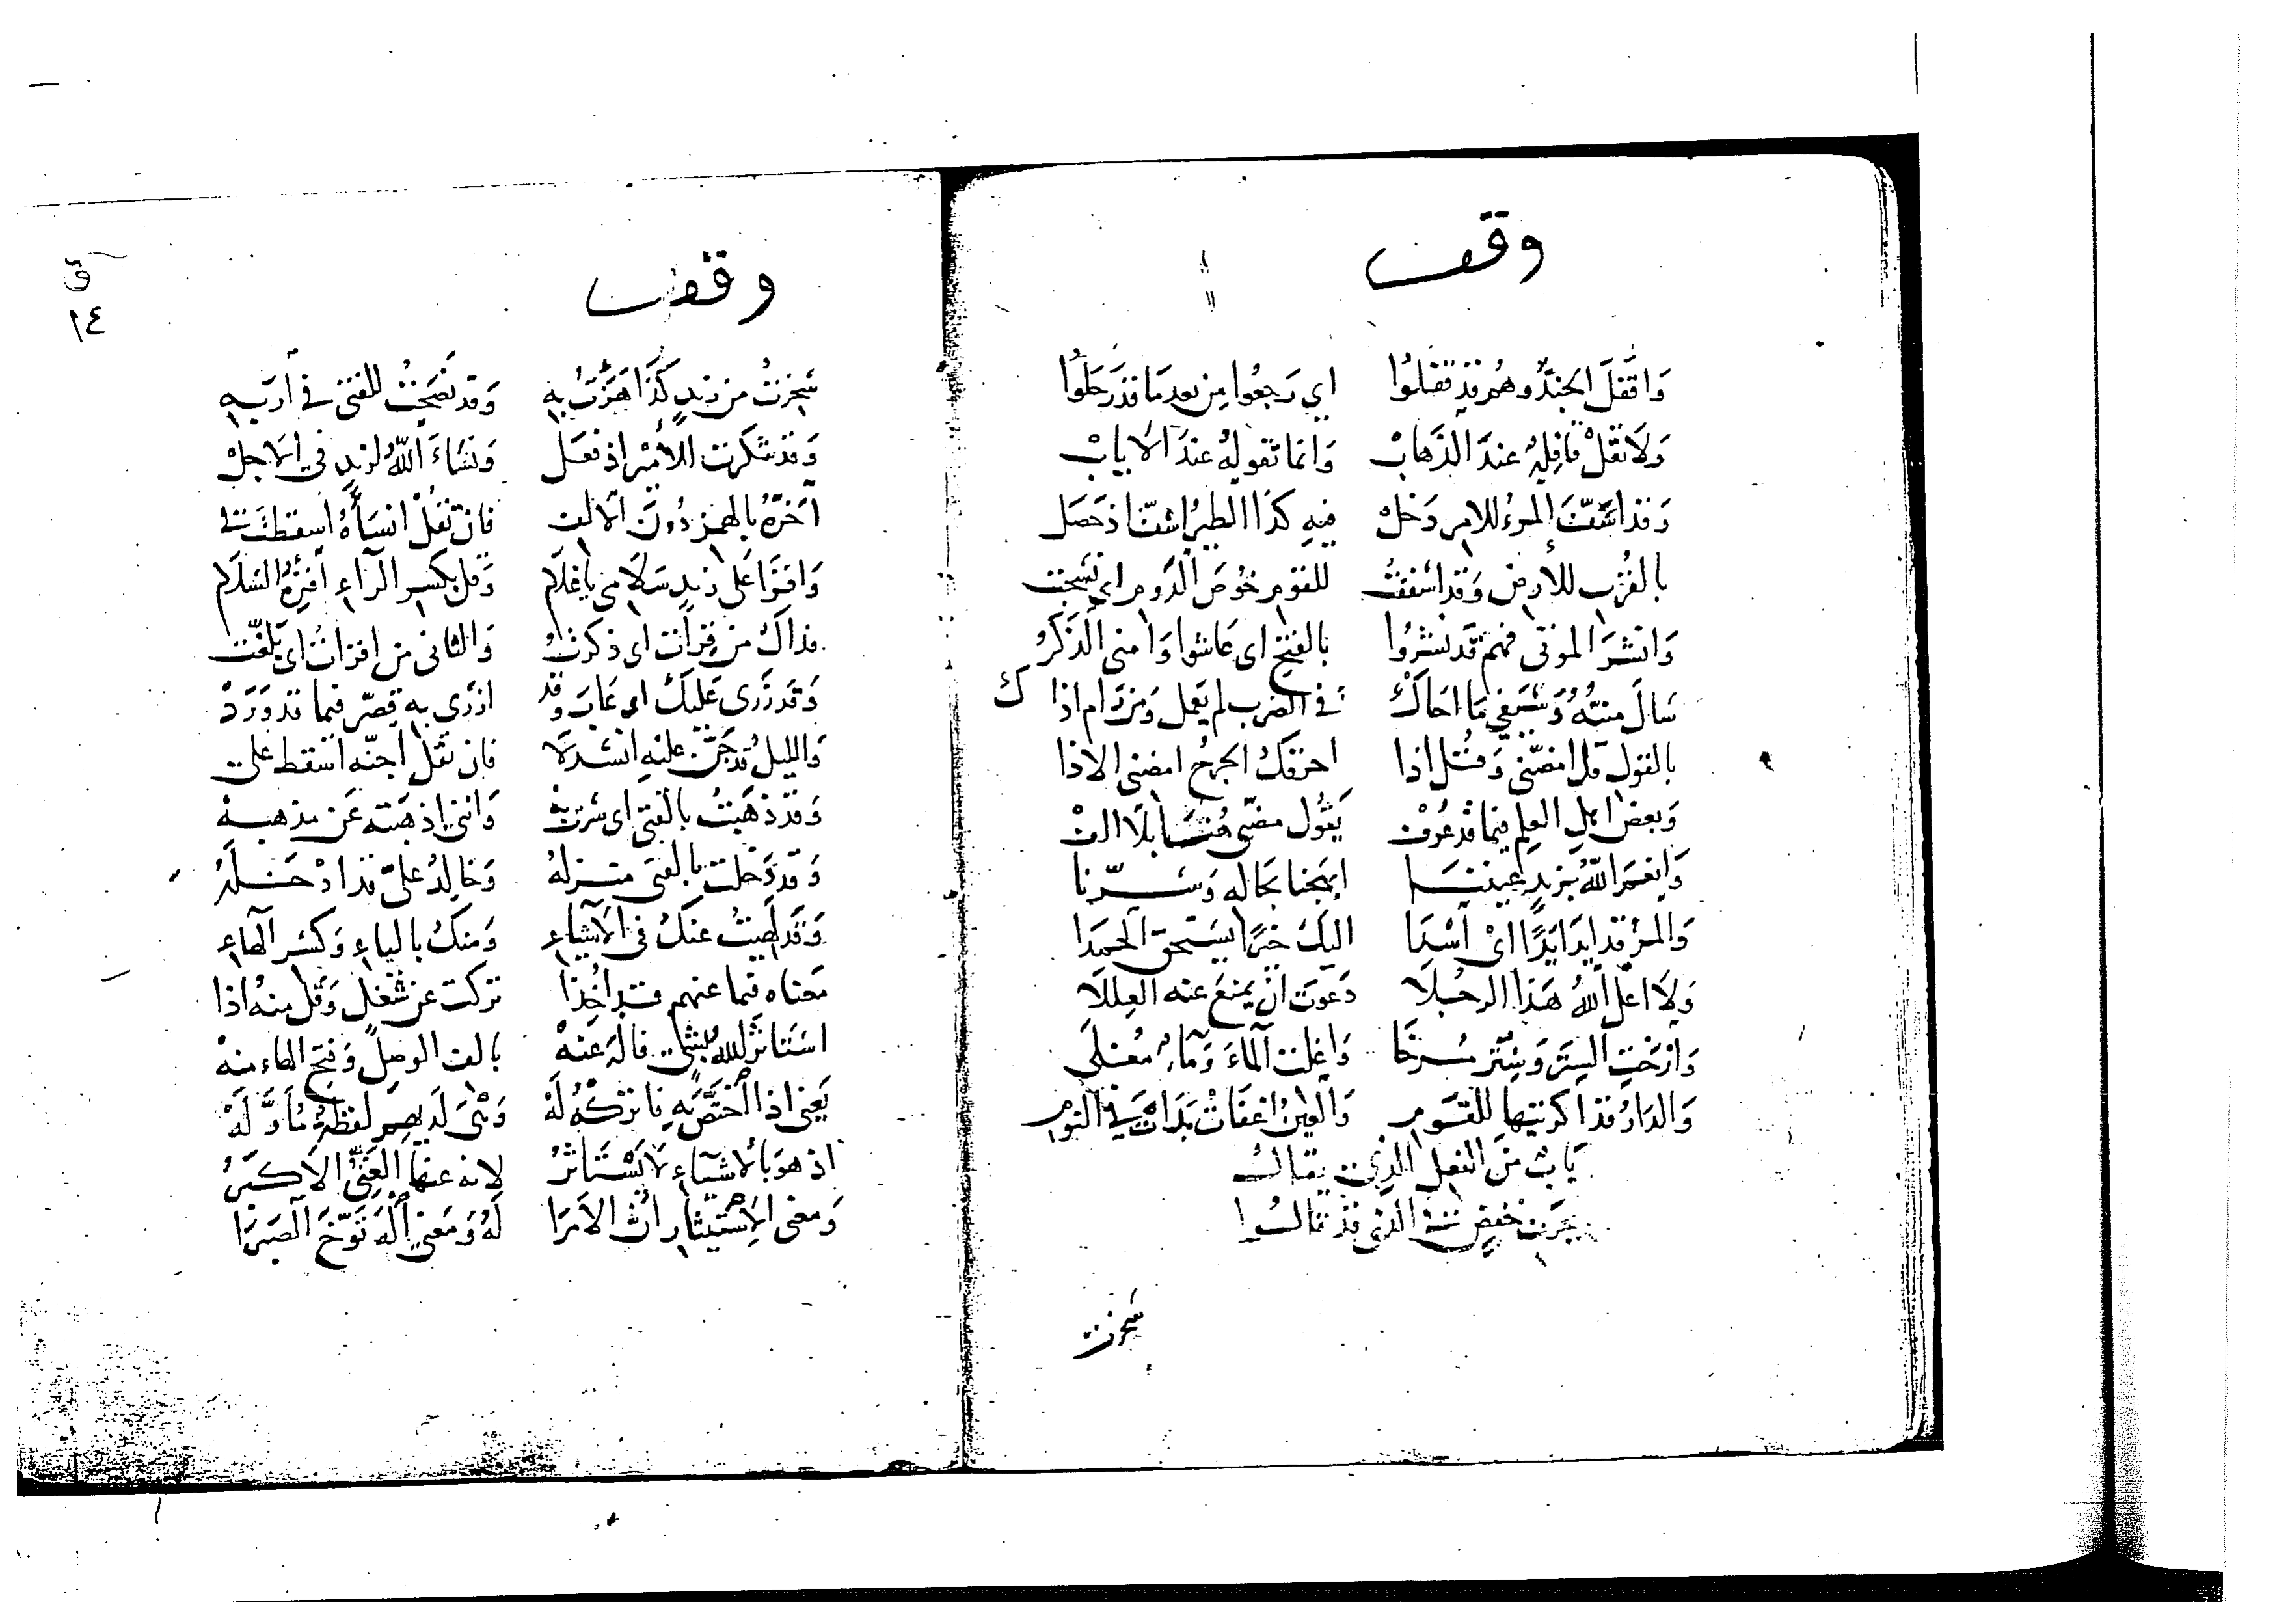 وقف
وَاقفَلَ الجندُ وهُم قد قفلوُا اي رَجعُوا مِن بعد مَا قد رَحَلوُا
وَلَا تقُلْ قافِلِهْ عندَ الذَهابْ وَانما تقولهُ عندَ الاِيابْ
وَقد اسَفَّ المرءُ للامرِ دَخلْ فيهِ كذَا الطيرُ اسَفّ اذ حَصَل
بالقُرْب للأرض وَقد اسْفَفتُ للقوم خُوصَ الدَوم اي نسَجت
وَانشَرَ الموتى فهم قد نشرُوا بالفتح اى عَاشوا وَامنى الذكَرُ
سَالَ منيُّهُ وَسَيفي مَا احَاكْ في الضرب لم يَعمل وَمن رَام اذاك
بالقول قل امضّنى وَقُل اذا احرقكَ الجرحُ امضنى الاذا
وَبعضُ اهلِ العِلم فيما قد عُرِفْ يَقُول مضّنى هُنَا بلَا الفْ
وَانعَمَ اللّهُ بزيدٍ عَينَا ابهجنا بحَاله وَسَرّنا
وَالمرْءُ قد ايدَا يَدًا اىْ اَسْدَا اليكَ خيرًا يستحق الحمدَا
وَلا اعَلّ اللهُ هَذا الرجُلَا دَعوتَ انْ يمنعَ عنه العِللَا
وَارْخَتِ السِترَ وَسِتْر مُرخَا وَاغلت المَاءَ وَمَاء مُغلَى
وَالدَارُ قد اكريتها للقَومِ وَالعَينُ اغفَاتْ بَدَاتْ في النومِ
بَابٌ منَ الفعل الذي يقالُ
بحَرف خفضٍ الذى قد قالُوا
سَخرت
وقف
ق
١٤
سَخِرْتُ من زيدٍ كذَا هَزئتُ بِه وَقد نصَحْتُ للفتى في أَرَبِه
وَقد شكَرتَ للأميْر اذ فعَل وَنسَاءَ اللّهُ لزيدٍ في الاجلْ
أخّرَهُ بالهمز دُونَ الالف فان تقُلْ انسَأهُ اسقِطْ في
وَاقرَا على زيدٍ سَلَامى يا غلَام وَقل بكسر الرآءِ اقرِئْهُ السَّلَام
فذاكَ من قرَأت اى ذكرتُ وَالثانى من اقرَات اى بَلغّت
وَقد زَرَى عَليكَ اى عَابَ وَقد ازرَى به قصّر فيما قد وَرَدْ
وَالليلُ قد جَنّ عليهِ انسْدلَا فان تقُل اجنّه اسْقط على
وَقد ذهَبتُ بالفتى اى سرْتُ بهْ وَانني اذهَبته عَن مذهبهْ
وَقد دَخلت بالفتى منزلهُ وَخالِدٌ علىّ قد ادْخَلَهُ
وَقد لَهيتُ عنكَ في الأشياءِ وَمنكَ بالياءِ وَكسْر الهاءِ
مَعناه فيما عنهم قد اُخِذا تركت عن شغلٍ وَقل منهُ اذا
اسْتَاثَرَ اللهُ بشىءٍ فالهَ عَنهْ بالف الوصلِ وَفتح الهاء منهْ
يَعنى اذا اختَصَّ بهِ فاترُكهُ لَهْ
اذ هوَ بالأشيَآءِ يَسْتَاثرُ لانه عنها الغَنيُّ الاكبَرُ
وَمعنى الاِسْتيثارِ الاَمرَا لَهُ وَمَعنى الْهَ تَوَخَّ الصَبرَا